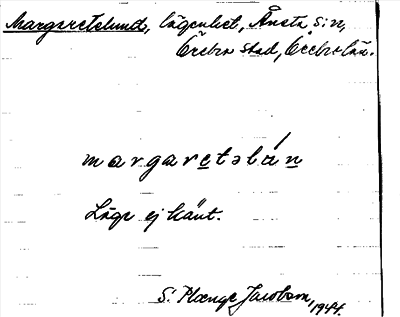 Margaretelund, lägenhet, Ånsta s:n,
Örebro stad, Örebro län.
margaretəlún
Läge ej känt.
S. Plænge Jacobson, 1944.